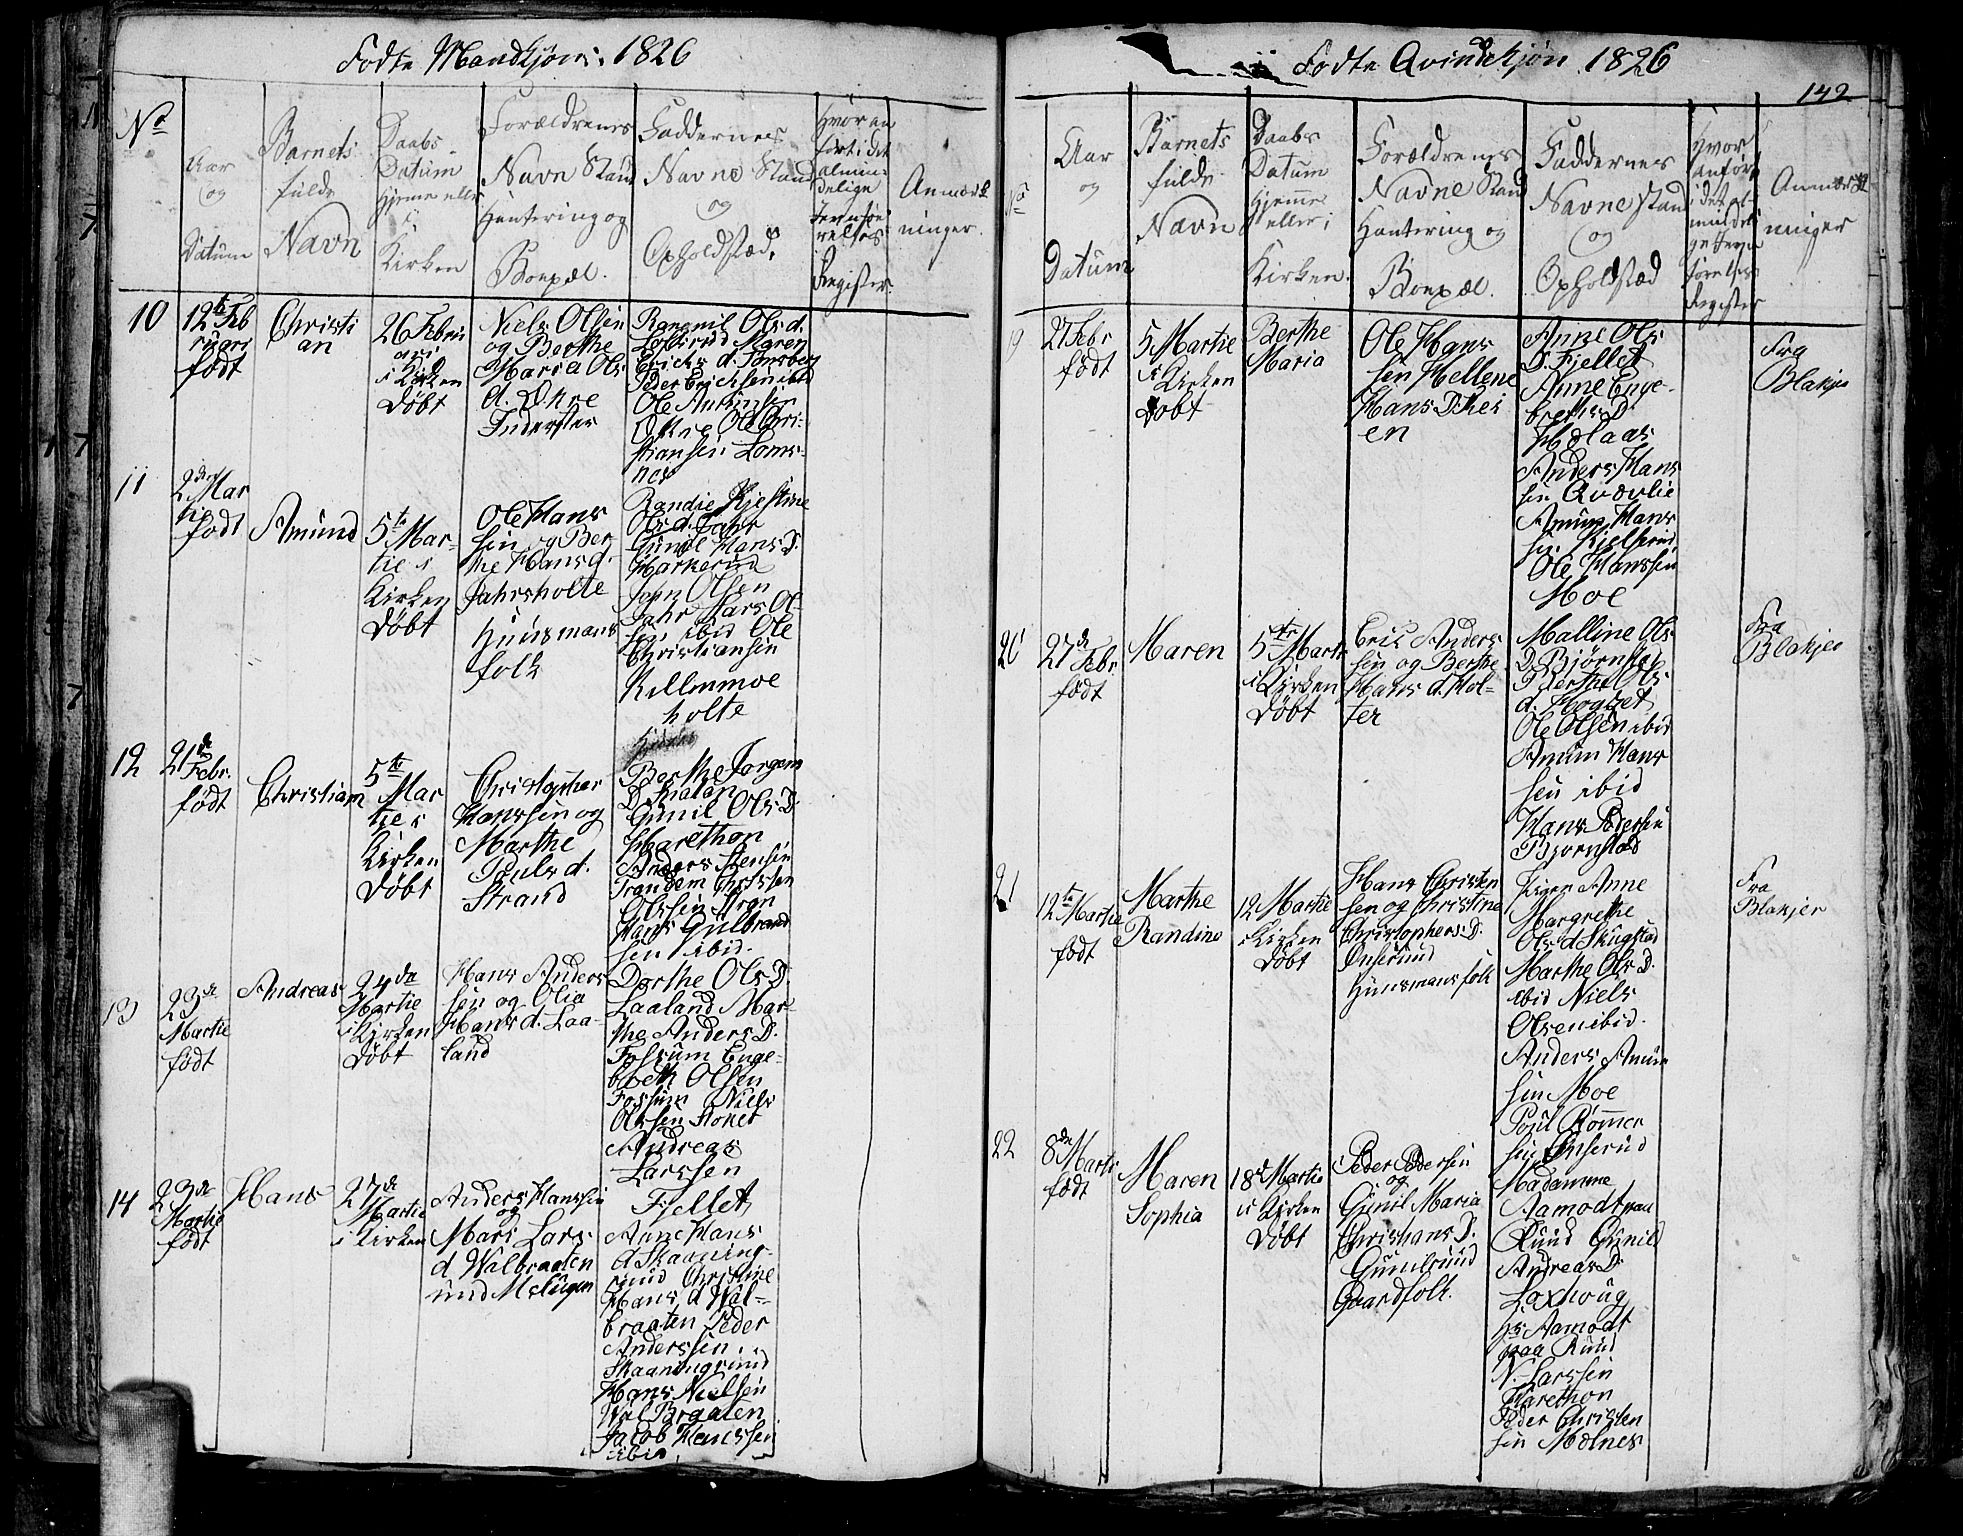 Fødte Mandkjøn: 1826
No
Aar
og
Datum
Barnets
fulde
Navn
Daabs
Datum
Hjemme eller
i
Kirken
Forældrenes
Navn Stand
Hantering og
Boepæl.
Faddernes
Navne Stand
og
Opholdstæd.
Hvor an
ført i det
almin-
delige
Jevnføe
relses
Register.
Anmærk
ninger.
10
12te Feb
ruari
født
Christi
an
26 Febru
ari
i Kirken
Døbt
Niels Olsen
og Berthe
Maria Ols
d. Økre
Inderster
Rangnil Ols d.
Maren
Erichs d. Tonsberg
Peder Erichsen ibid
Ole
Økre Ole Chri-
stiansen Loms-
nes
11
2den Mar
ti
født
Amund
5te Mar-
tie i
Kirken
Døbt
Ole Hans
sen og Ber
the Hans d.
Jahrsholte
Huusmans
folk
Randie Kjestine
Ols d. Jahr
Gunil Hans D.
Harkerud
John Olsen
Jahr Lars Ol-
sen ibid Ole
Christiansen
Killinmoe
holte
12
21de
Febr.
født
Christian
5te
Mar
tie i
Kirken
Døbt
Christopher
Hanssen og
Marthe
Pauls d.
Strand
Berthe Jorgen
D.
Gunil Ols D.
Harethon
Anders Stensen
Trandem
Olssen
Hans Gulbrand
sen ibid.
13
23de
Martie
født
Andreas
24de
Martie
i Kirken
Døbt
Hans Anders
sen og Olia
Hans d. Laa-
land
Dorthe Ols D.
Laaland Mar-
the Anders D.
Fossum Enge-
breth Olsen
Fossum Niels
Olssen
Andreas
Larssen
Fjellet
14
23de
Martie
født
Hans
27de
Martie
i Kirken
Anders Hanssen
og
Mari Lars
d. Walbraaten
und
Anne Hans
d. Skaaning-
rund Christine
Hans d. Wal-
braaten Peder
Anderssen
Skaaningrund
Hans Nielsen
Wal Braaten
Jacob Hanssen
ibid.
Fødte Qvindekjøn 1826
142
No
Aar
og
Datum
Barnets
fulde
Navn
Daabs
Datum
Hjemme
eller i
Kirken.
Forældrenes
Navne Stand
Hantering og
Boepæl.
Faddernes
Navne Stand
og
Opholdstæd
Hvor
anført
i det al-
mindeli
ge Jevn
førelses
Register
Anmærk
ninger
19
27 Febr
født
5 Martie
i Kirken
Døbt
Berthe
Maria
Ole Hans
sen Hellene
Hans D.
en
Anne Ols
D. Fjellet
Anne Enge-
breths D.
Anders Hans
sen Qværlie
Amun Hans
sen Kjelserud
Ole Hanssen
Moe
Fra
Blakjer
20
27de
Febr
født
Maren
5te Marti
i Kirken
Døbt
Eric Anders
sen og Berthe
Hans d. Hol-
ter
Malline Ols
D. Bjørnstad
Berthe Ols
d. Hogset
Ole Olsen ibid
Amum Hans
sen ibid
Hans Pedersen
Bjørnstad
Fra
Blakjer
21
12te Martie
født
Marthe
Randine
12 Martie
i Kirken
Døbt
Hans Christen
sen og Christine
Christophers D.
Onserund
Huusmansfolk
Pigen Anne
Margrethe
Ols d. Skugstad
Marthe Ols D.
ibid Niels
Olsen ibid.
Anders Amun
sen Moe
Poul Rømmer
sen Onserud
Fra
Blakjer
22
8de Marti
født
Maren
Sophia
18de Martie
i Kirken
Døbt
Peder Pedersen
og
Gunil Maria
Christians D.
Gunilrund
Gaardfolk.
Madamme
Aamodt paa
Ruud Gunild
Andreas D.
Laxhoug
Hr Aamodt
paa Ruud
N. Larssen
Harethon
Peder Christen
sen Molnes